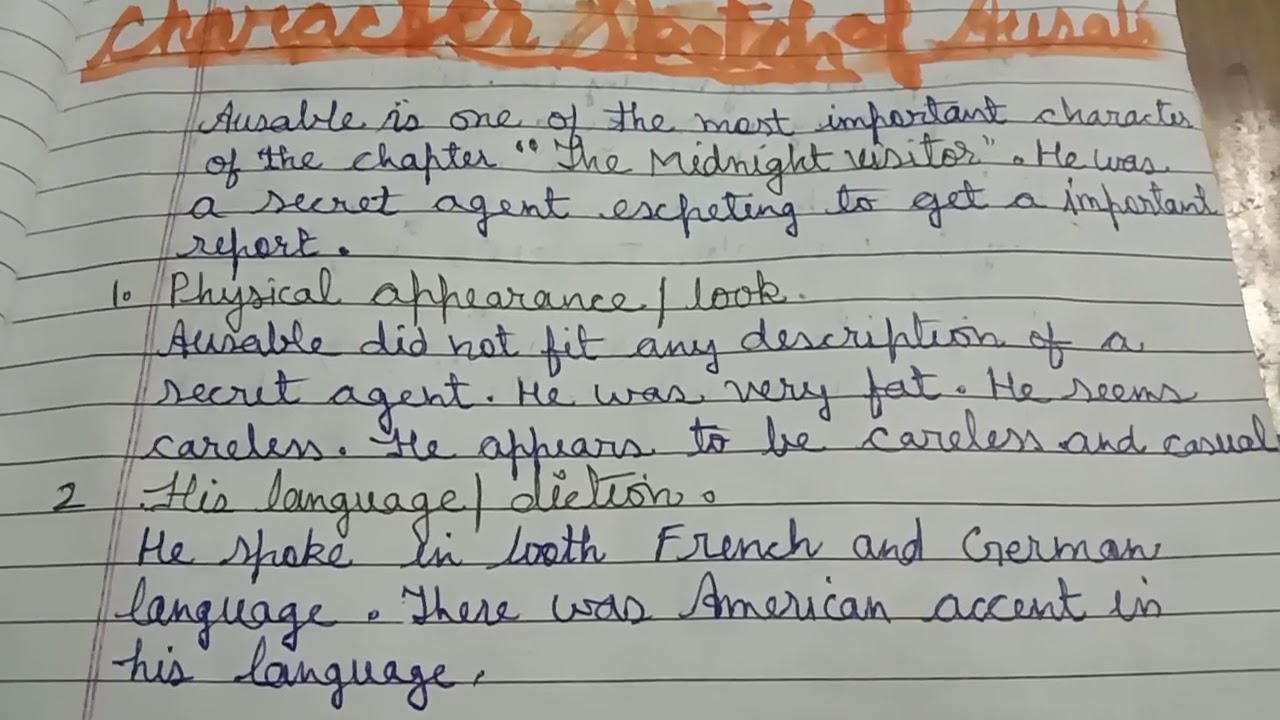 Character Sketch of Ausabl
Ausable is one of the most important character
of the chapter "The Midnight visitor". He was
a secret agent escpeting to get a important
report.
1. Physical appearance/look.
Ausable did not fit any description of a
secret agent. He was very fat. He seems
careless. He appears to be careless and casual
2 His language/diction.
He spoke in both French and German
language. There was American accent in
his language.